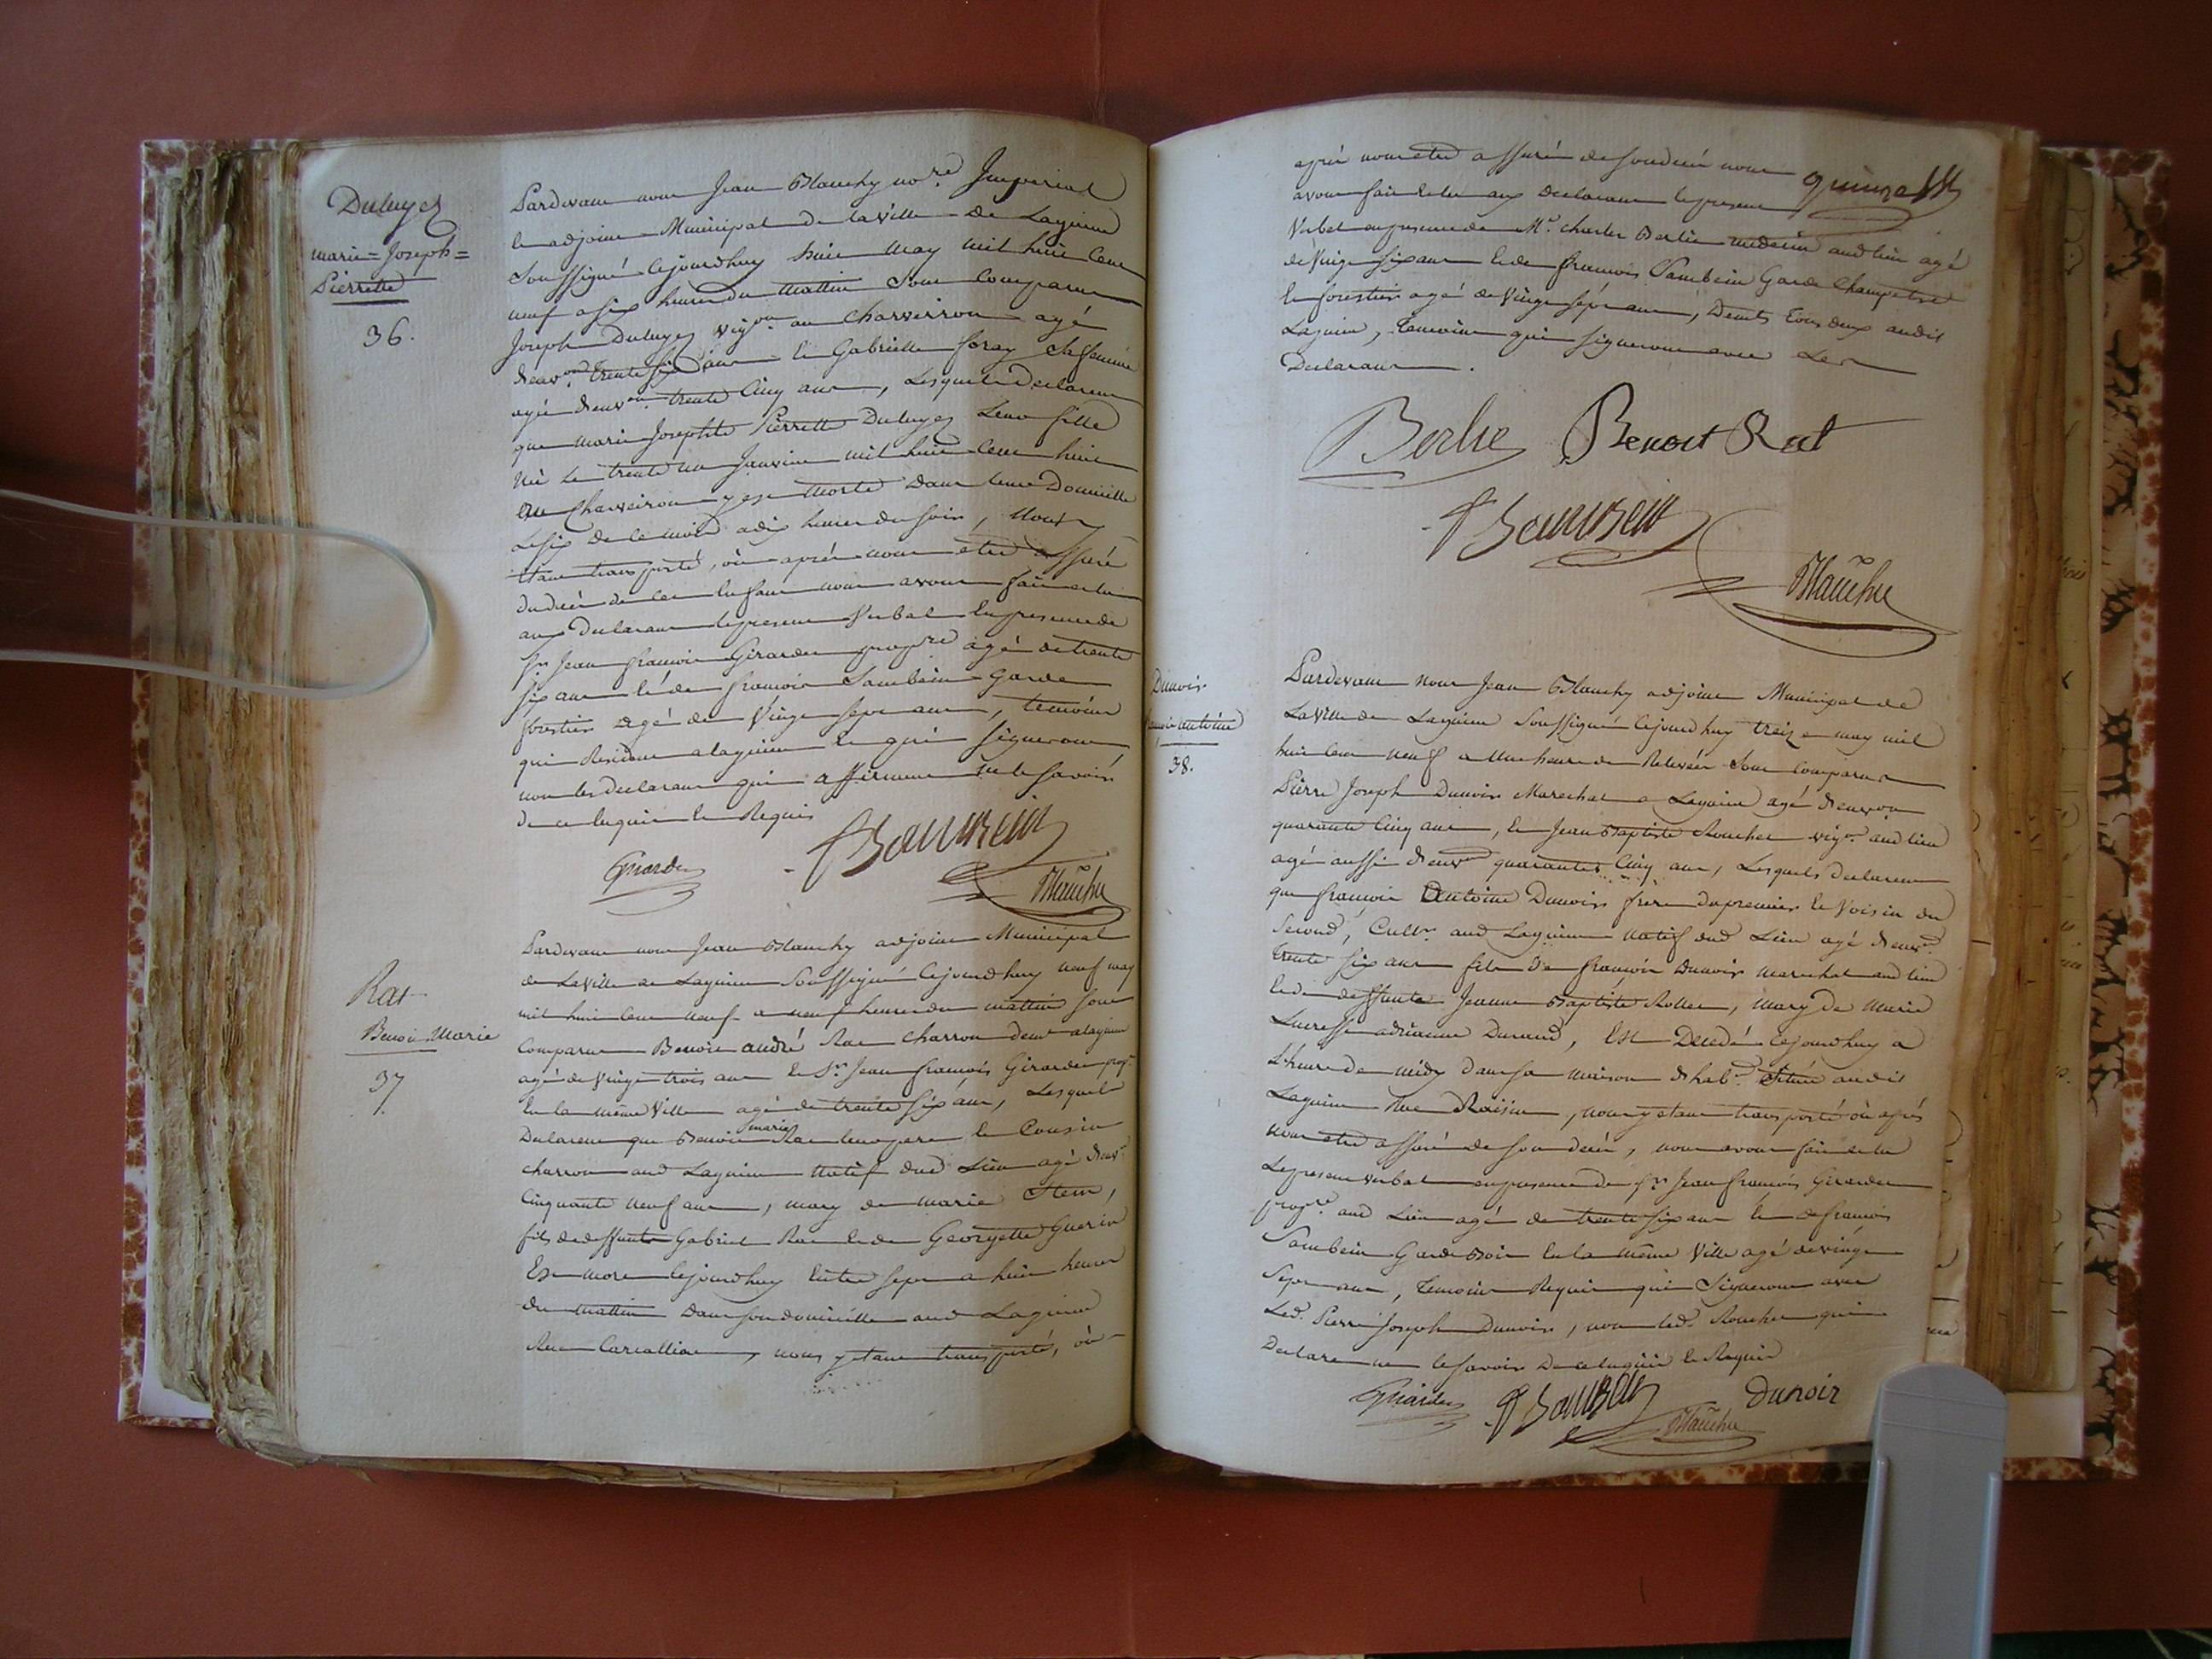 Duluyez
marie=Joseph=
Pierrette
36.
Pardevant nous Jean Blanchy no.re Imperial
et adjoint Municipal de la ville de Lagnieu
Soussigné cejourdhuy huit may mil huit Cent
neuf a six heures du mattin Sont Comparus
Joseph Duluyez vig.on au Charveyron agé
d'env.on trente six ans et Gabrielle foray Sa femme
agée d'env.on trente Cinq ans, Lesquels declarent
que marie Josephte Pierrette Duluyez Leur fille
Née Le trente un Janvier mil huit Cent huit
au Charveiron y est morte dans leur Domicille
Le six de ce mois a dix heures du soir, Nous y
étant transporté, où après nous être assuré
du decés de cet Enfant nous avons fait et lu
aux Declarans le present Verbal En presence de
Sr. Jean françois Girardet prop.re agé de trente
six ans et de françois Sambein Garde
forestier agé de Vingt sept ans, temoins
qui Resident a lagnieu et qui signeront
non les declarans qui affirment ne le savoir
de ce Enquis et Requis
Girardet
f Sambein
Blanchy
Rat
Benoit Marie
37
Pardevant nous Jean Blanchy adjoint Municipal
de La Ville de Lagnieu Soussigné Cejourdhuy neuf may
mil huit Cent neuf a neuf heures du mattin Sont
Comparus Benoit andré Rat charron demt a lagnieu
agé de vingt trois ans et Sr. Jean françois Girardet prop.re
En la même Ville agé de trente six ans, Lesquels
Declarent que Benoit marie Rat leur pere et Cousin
charron aud Lagnieu Natif dud Lieu agé d'env.
Cinquante neuf ans, mary de marie
fils de deffunts Gabriel Rat et de Georgette Guerin
Est mort cejourdhuy Entre sept a huit heures
du mattin Dans son domicille aud Lagnieu
Rue, nous y étant transporté, où
après nous être assuré de son decés nous quinze
avons fait et lu aux declarans le present
Verbal en presence de Mr. charles Berlie medecin aud lieu agé
de Vingt six ans et de françois Sambein Garde Champetre
et forestier agé de Vingt sept ans, Demts tous deux audit
Lagnieu, temoins qui signeront avec Les
Declarans.
Berlie Benoit Rat
f Sambein
Blanchy
Dunoir
françois antoine
38.
Pardevant Nous Jean Blanchy adjoint Municipal de
La Ville de Lagnieu Soussigné Cejourdhuy treize may mil
huit Cent Neuf a Une heure de Relevée Sont Comparus
Pierre Joseph Dunoir Marechal a Lagnieu agé d'environ
quarante Cinq ans, et Jean Baptiste Rouchet vig.on aud lieu
agé aussi d'env.on quarante Cinq ans, Lesquels declarent
que françois Antoine Dunoir frere du premier et Voisin du
Second, Cult.r aud Lagnieu Natif dud Lieu agé d'env.on
trente six ans fils de françois Dunoir marechal aud lieu
et de deffunte Jeanne Baptiste Rollet, mary de Marie
Lucresse adrianne Durand, Est Decedé Cejourdhuy a
L'heure de midy dans sa maison d'hab.on Située audit
Lagnieu Rue Raisin, nous y étant transporté où après
nous être assuré de son decés, nous avons fait et lu
Le present verbal en presence de Sr. Jean françois Girardet
prop.re aud Lieu agé de trente six ans et de françois
Sambein Garde Bois En la même Ville agé de vingt
Sept ans, temoins Requis qui Signeront avec
Led. Pierre Joseph Dunoir, non led. Rouchet qui
Declare ne le savoir De ce Enquis et Requis
Girardet f Sambein Dunoir
Blanchy